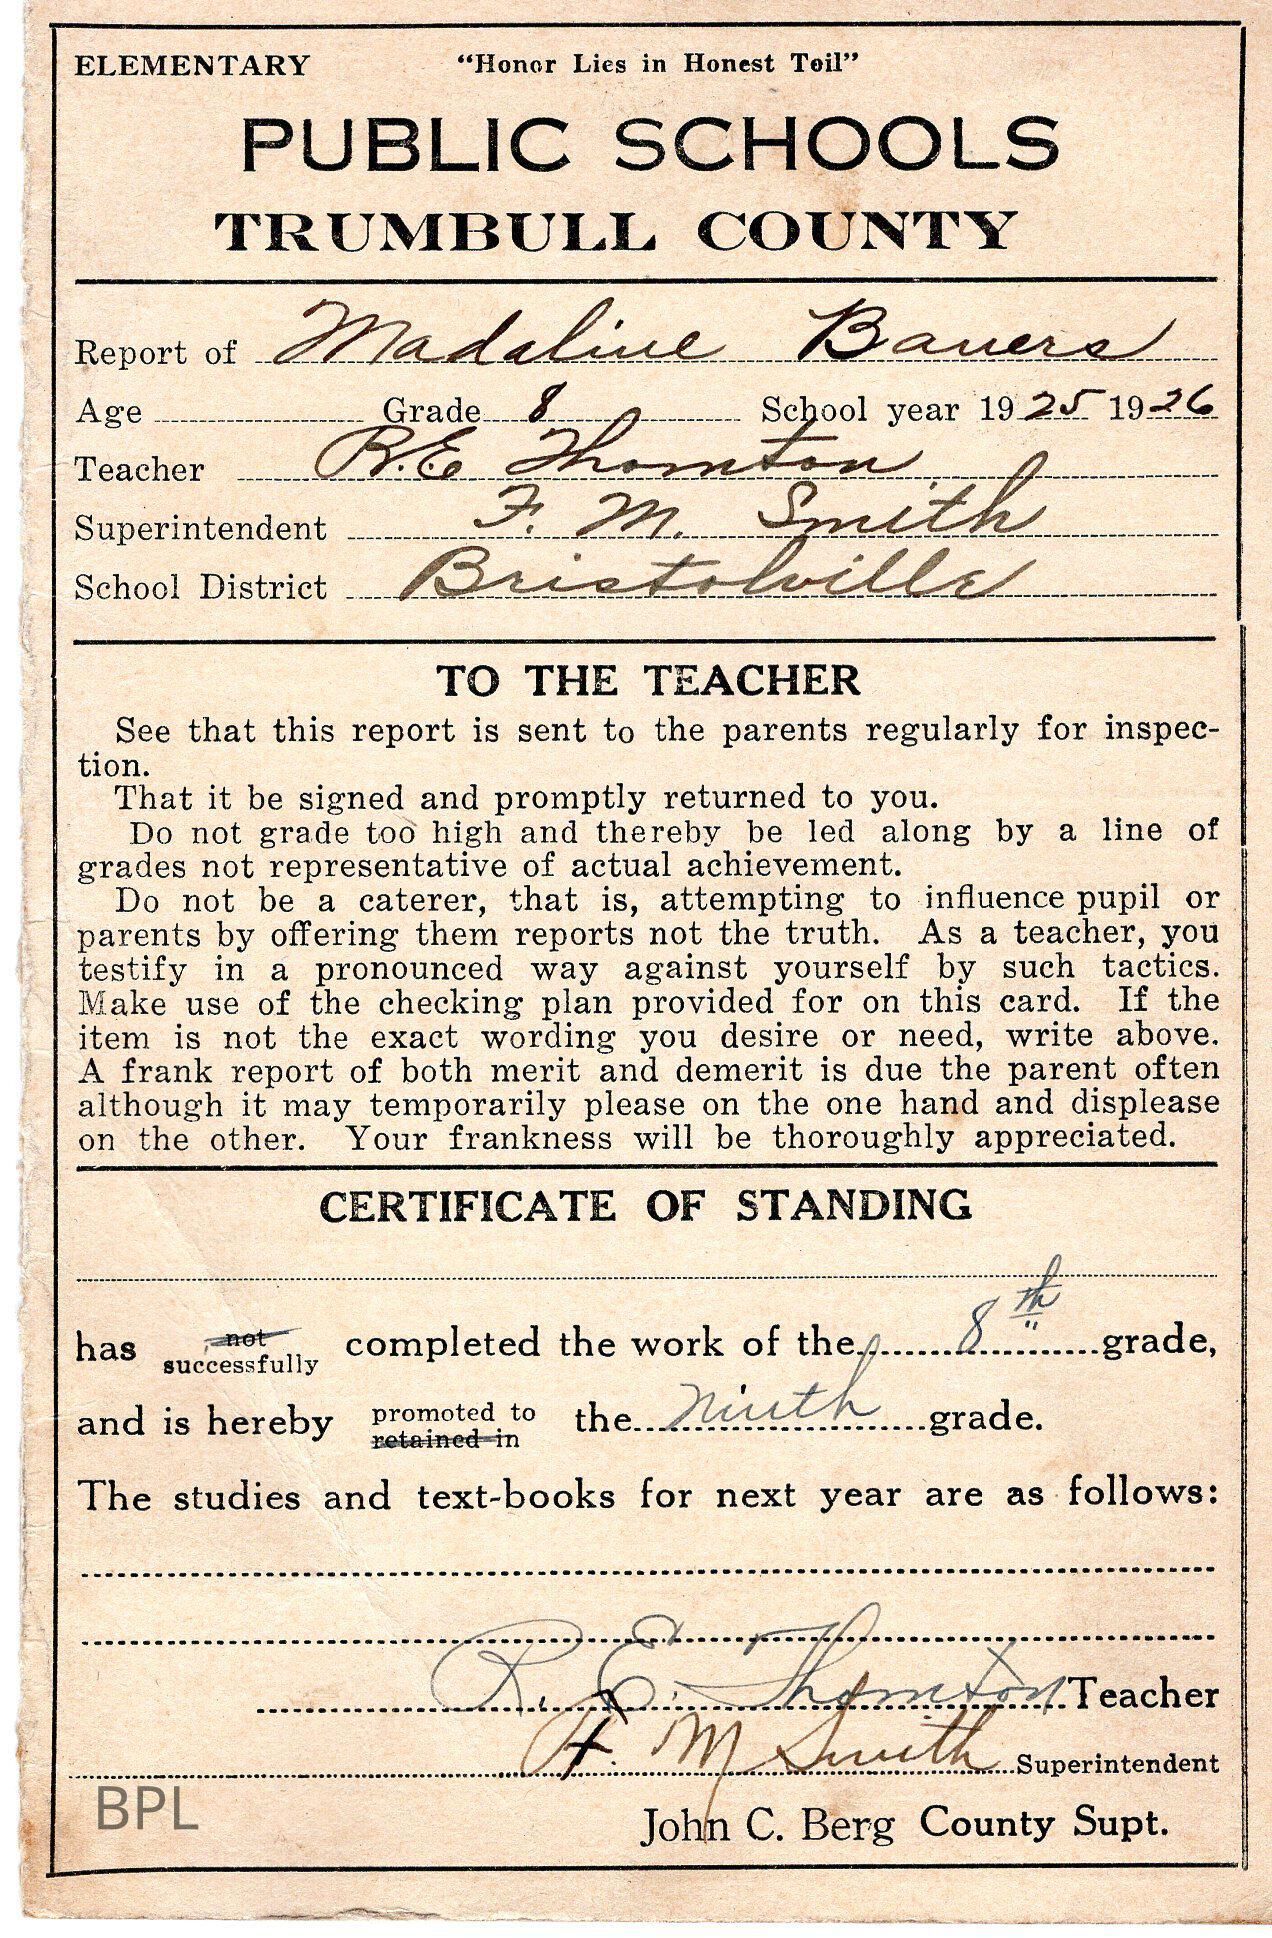 ELEMENTARY "Honor Lies in Honest Toil"
PUBLIC SCHOOLS
TRUMBULL COUNTY
Report of Madaline Bauers
Age Grade 8 School year 1925 1926
Teacher R.E. Thornton
Superintendent F. M. Smith
School District Bristolville
TO THE TEACHER
See that this report is sent to the parents regularly for inspec-
tion.
That it be signed and promptly returned to you.
Do not grade too high and thereby be led along by a line of
grades not representative of actual achievement.
Do not be a caterer, that is, attempting to influence pupil or
parents by offering them reports not the truth. As a teacher, you
testify in a pronounced way against yourself by such tactics.
Make use of the checking plan provided for on this card. If the
item is not the exact wording you desire or need, write above.
A frank report of both merit and demerit is due the parent often
although it may temporarily please on the one hand and displease
on the other. Your frankness will be thoroughly appreciated.
CERTIFICATE OF STANDING
has not successfully completed the work of the 8th grade,
and is hereby promoted to retained in the Ninth grade.
The studies and text-books for next year are as follows:
R. E. Thornton Teacher
F. M Smith Superintendent
BPL
John C. Berg County Supt.